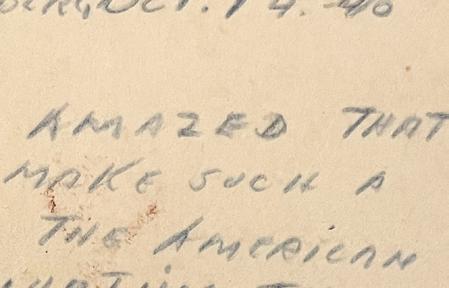 OCT. 14. 40
AMAZED THAT
MAKE SUCH A
THE AMERICAN